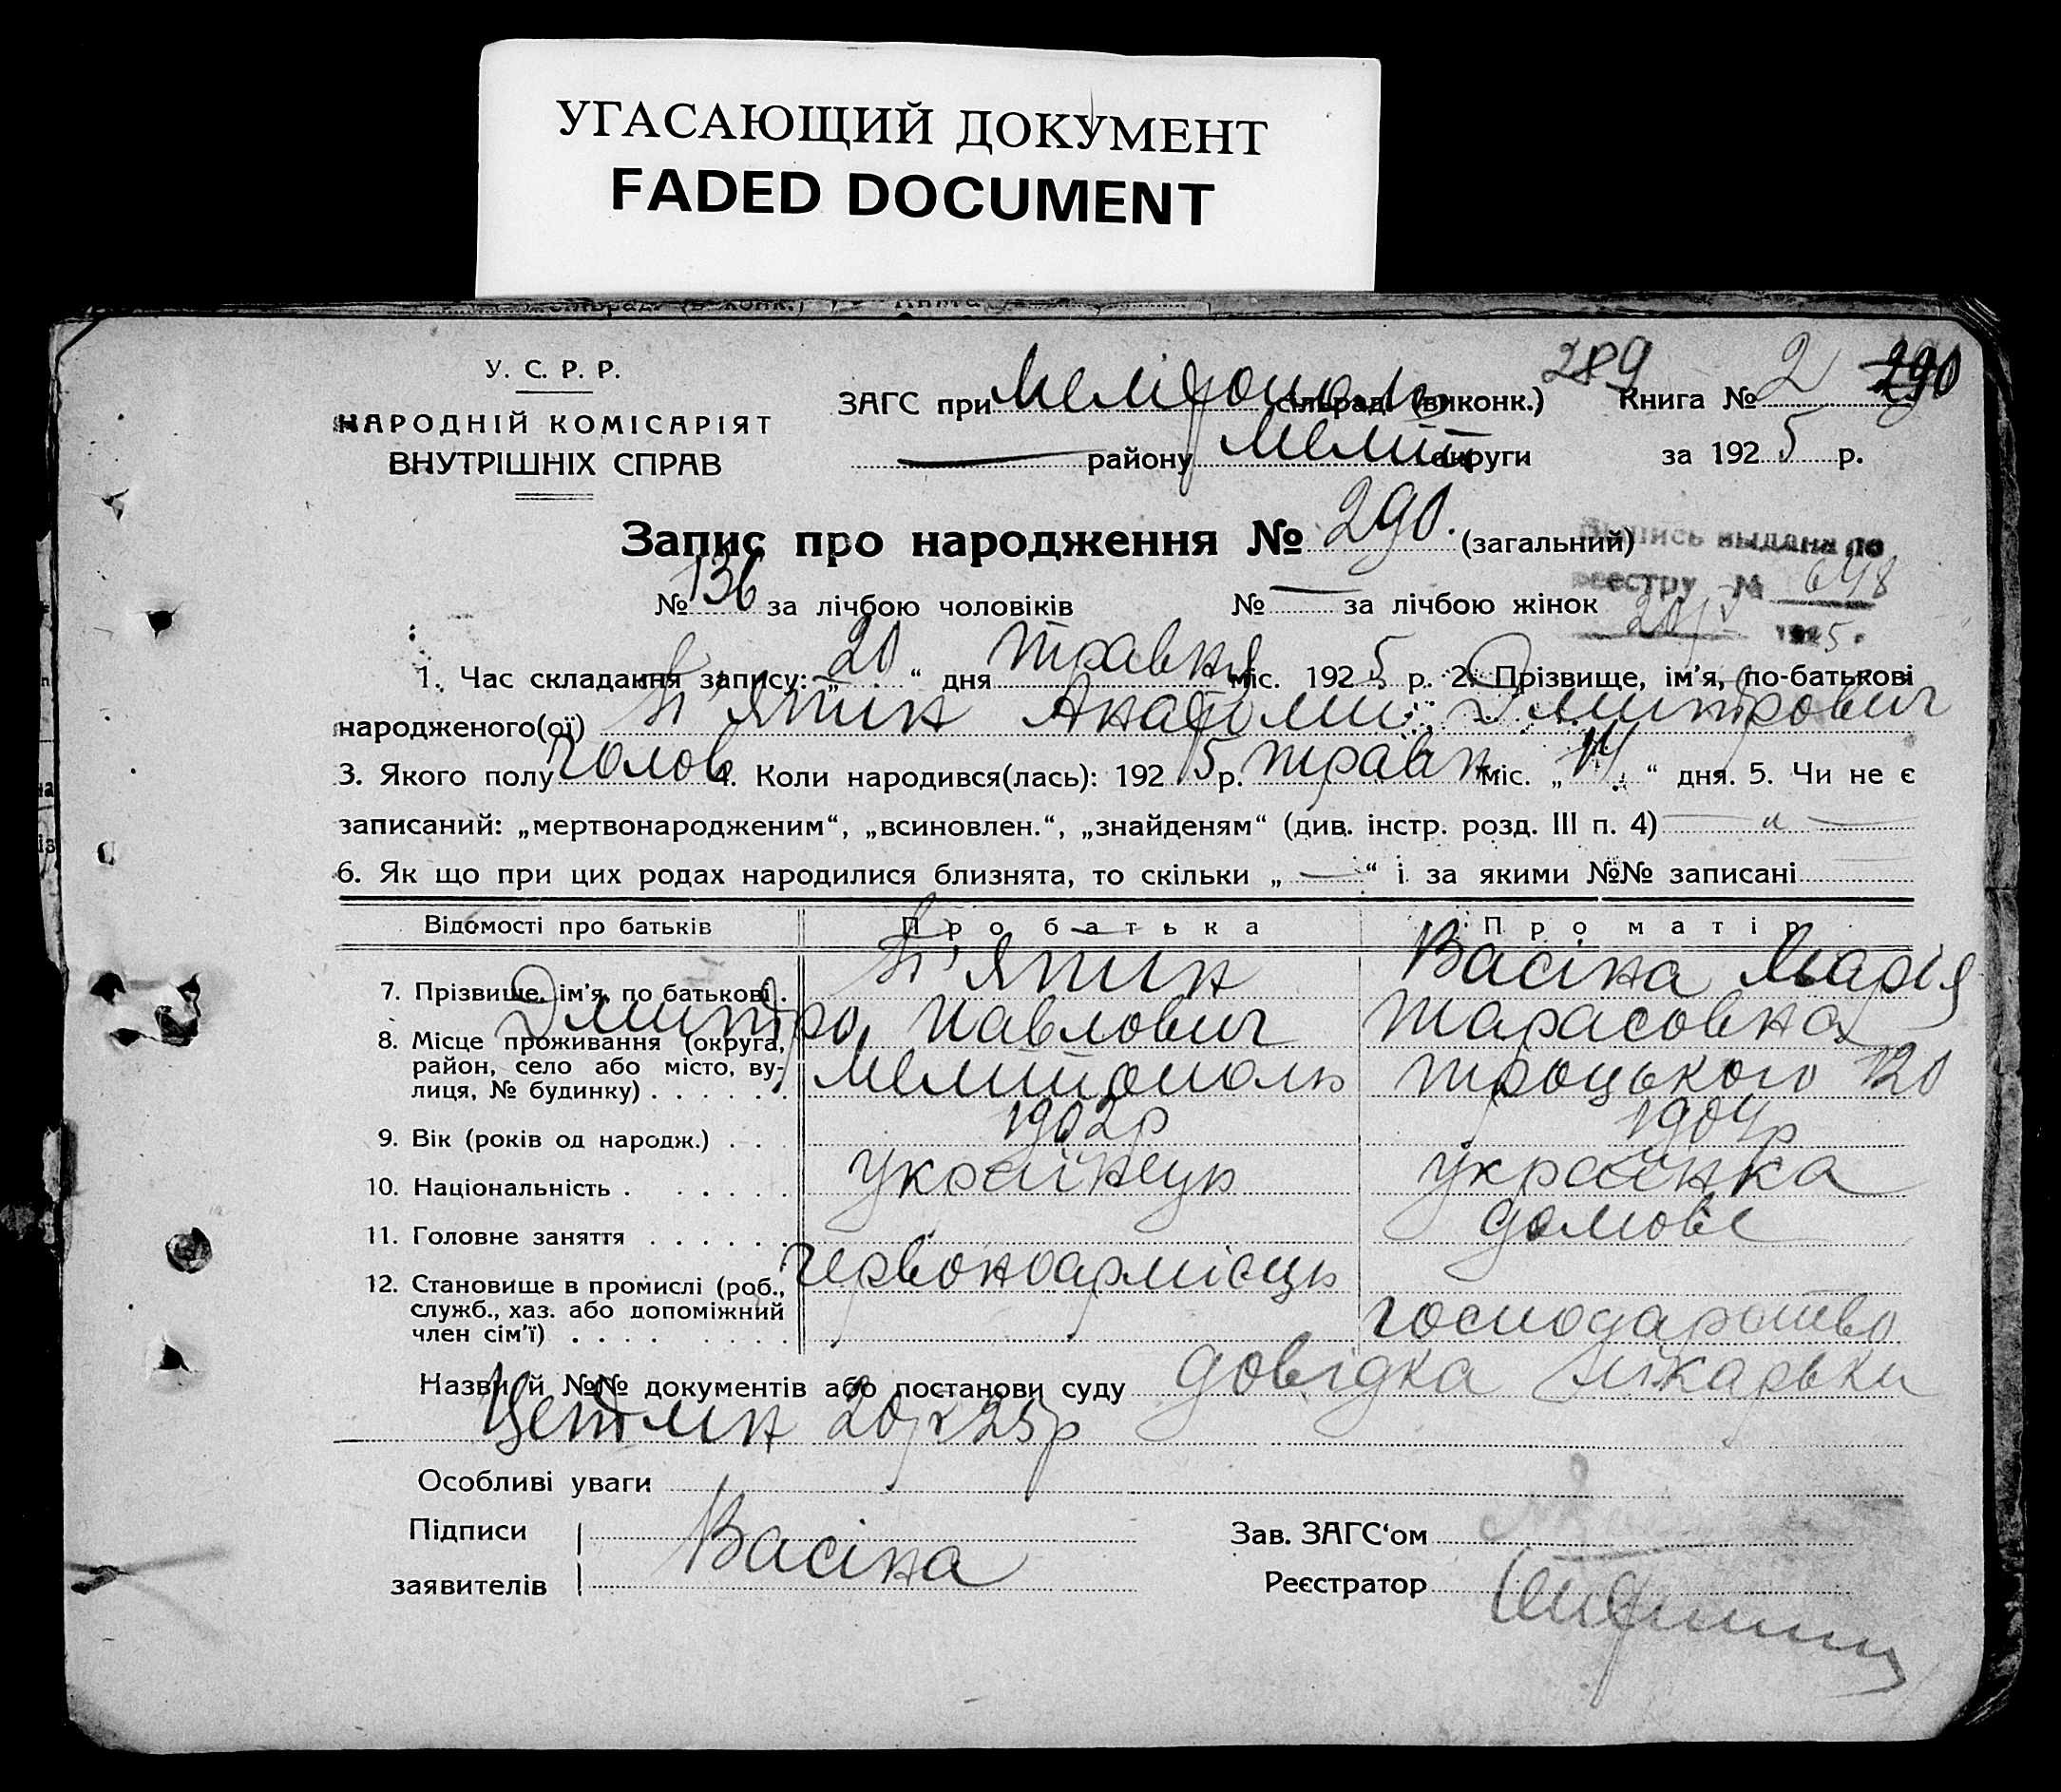 УГАСАЮЩИЙ ДОКУМЕНТ
FADED DOCUMENT
У. С. Р. Р.
НАРОДНІЙ КОМІСАРІЯТ
ВНУТРІШНІХ СПРАВ
289
ЗАГС при Мелітополь сільраді (виконк.) Книга № 2 290
району Меліт округи за 1925 р.
Запис про народження № 290. (загальний)
Выпись выдана по
реестру № 648
20/V 1925.
№ 136 за лічбою чоловіків № — за лічбою жінок
1. Час складання запису: „ 20 “ дня травня міс. 1925 р. 2. Прізвище, ім'я, по-батькові
народженого(ої) П'ятин Анатоми Дмитрович
3. Якого полу чолов 4. Коли народився(лась): 1925 р. травн міс. „ 14 “ дня. 5. Чи не є
записаний: „мертвонародженим“, „всиновлен.“, „знайденям“ (див. інстр. розд. III п. 4) — „ —
6. Як що при цих родах народилися близнята, то скільки „ — “ і за якими №№ записані
Відомості про батьків Про батька Про матір
7. Прізвище, ім'я, по батькові . П'ятин Васіна Марія
Дмитро Павлович Тарасовна
8. Місце проживання (округа,
район, село або місто, ву-
лиця, № будинку) . . . . . . Мелитополь Троцького 120
9. Вік (років од народж.) . . 1902р 1904р
10. Національність . . . . . . українець українка
11. Головне заняття . . . . . . червоноармієць домове
12. Становище в промислі (роб.,
служб., хаз. або допоміжний
член сім'ї) . . . . . . . . господарство
Назви й №№ документів або постанови суду довідка лікарьки
20/V 25р
Особливі уваги
Підписи
заявителів Васіна
Зав. ЗАГС‘ом
Реєстратор